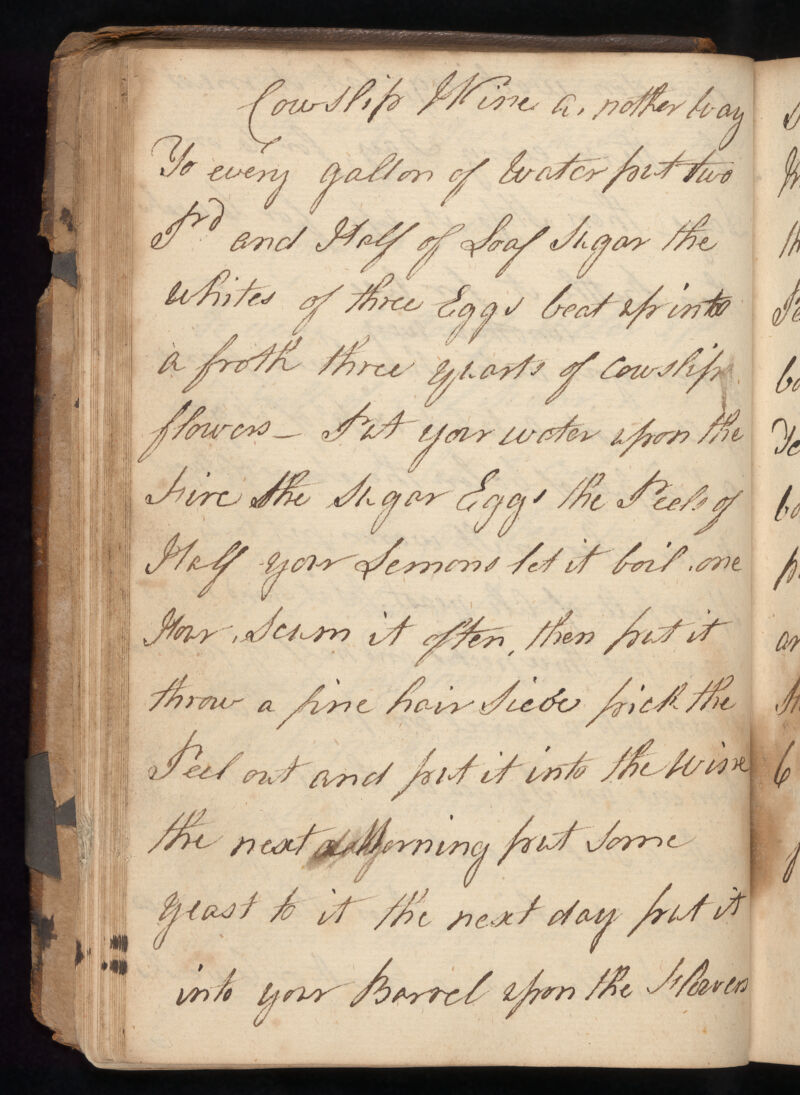 Cowslip Wine a, nother way
To every gallon of Water put two
Prd and Half of Loaf Sugar the
Whites of three Eggs beat up into
a froth three quarts of Cowslip
flowers – Put your water upon the
Fire the Sugar Eggs the Peels of
Half your Lemons let it boil one
Hour, Scum it often, then put it
throw a fine hair Sieve pick the
Peel out and put it into the Wine
the next Morning put some
yeast to it the next day put it
into your Barrel upon the Flowers